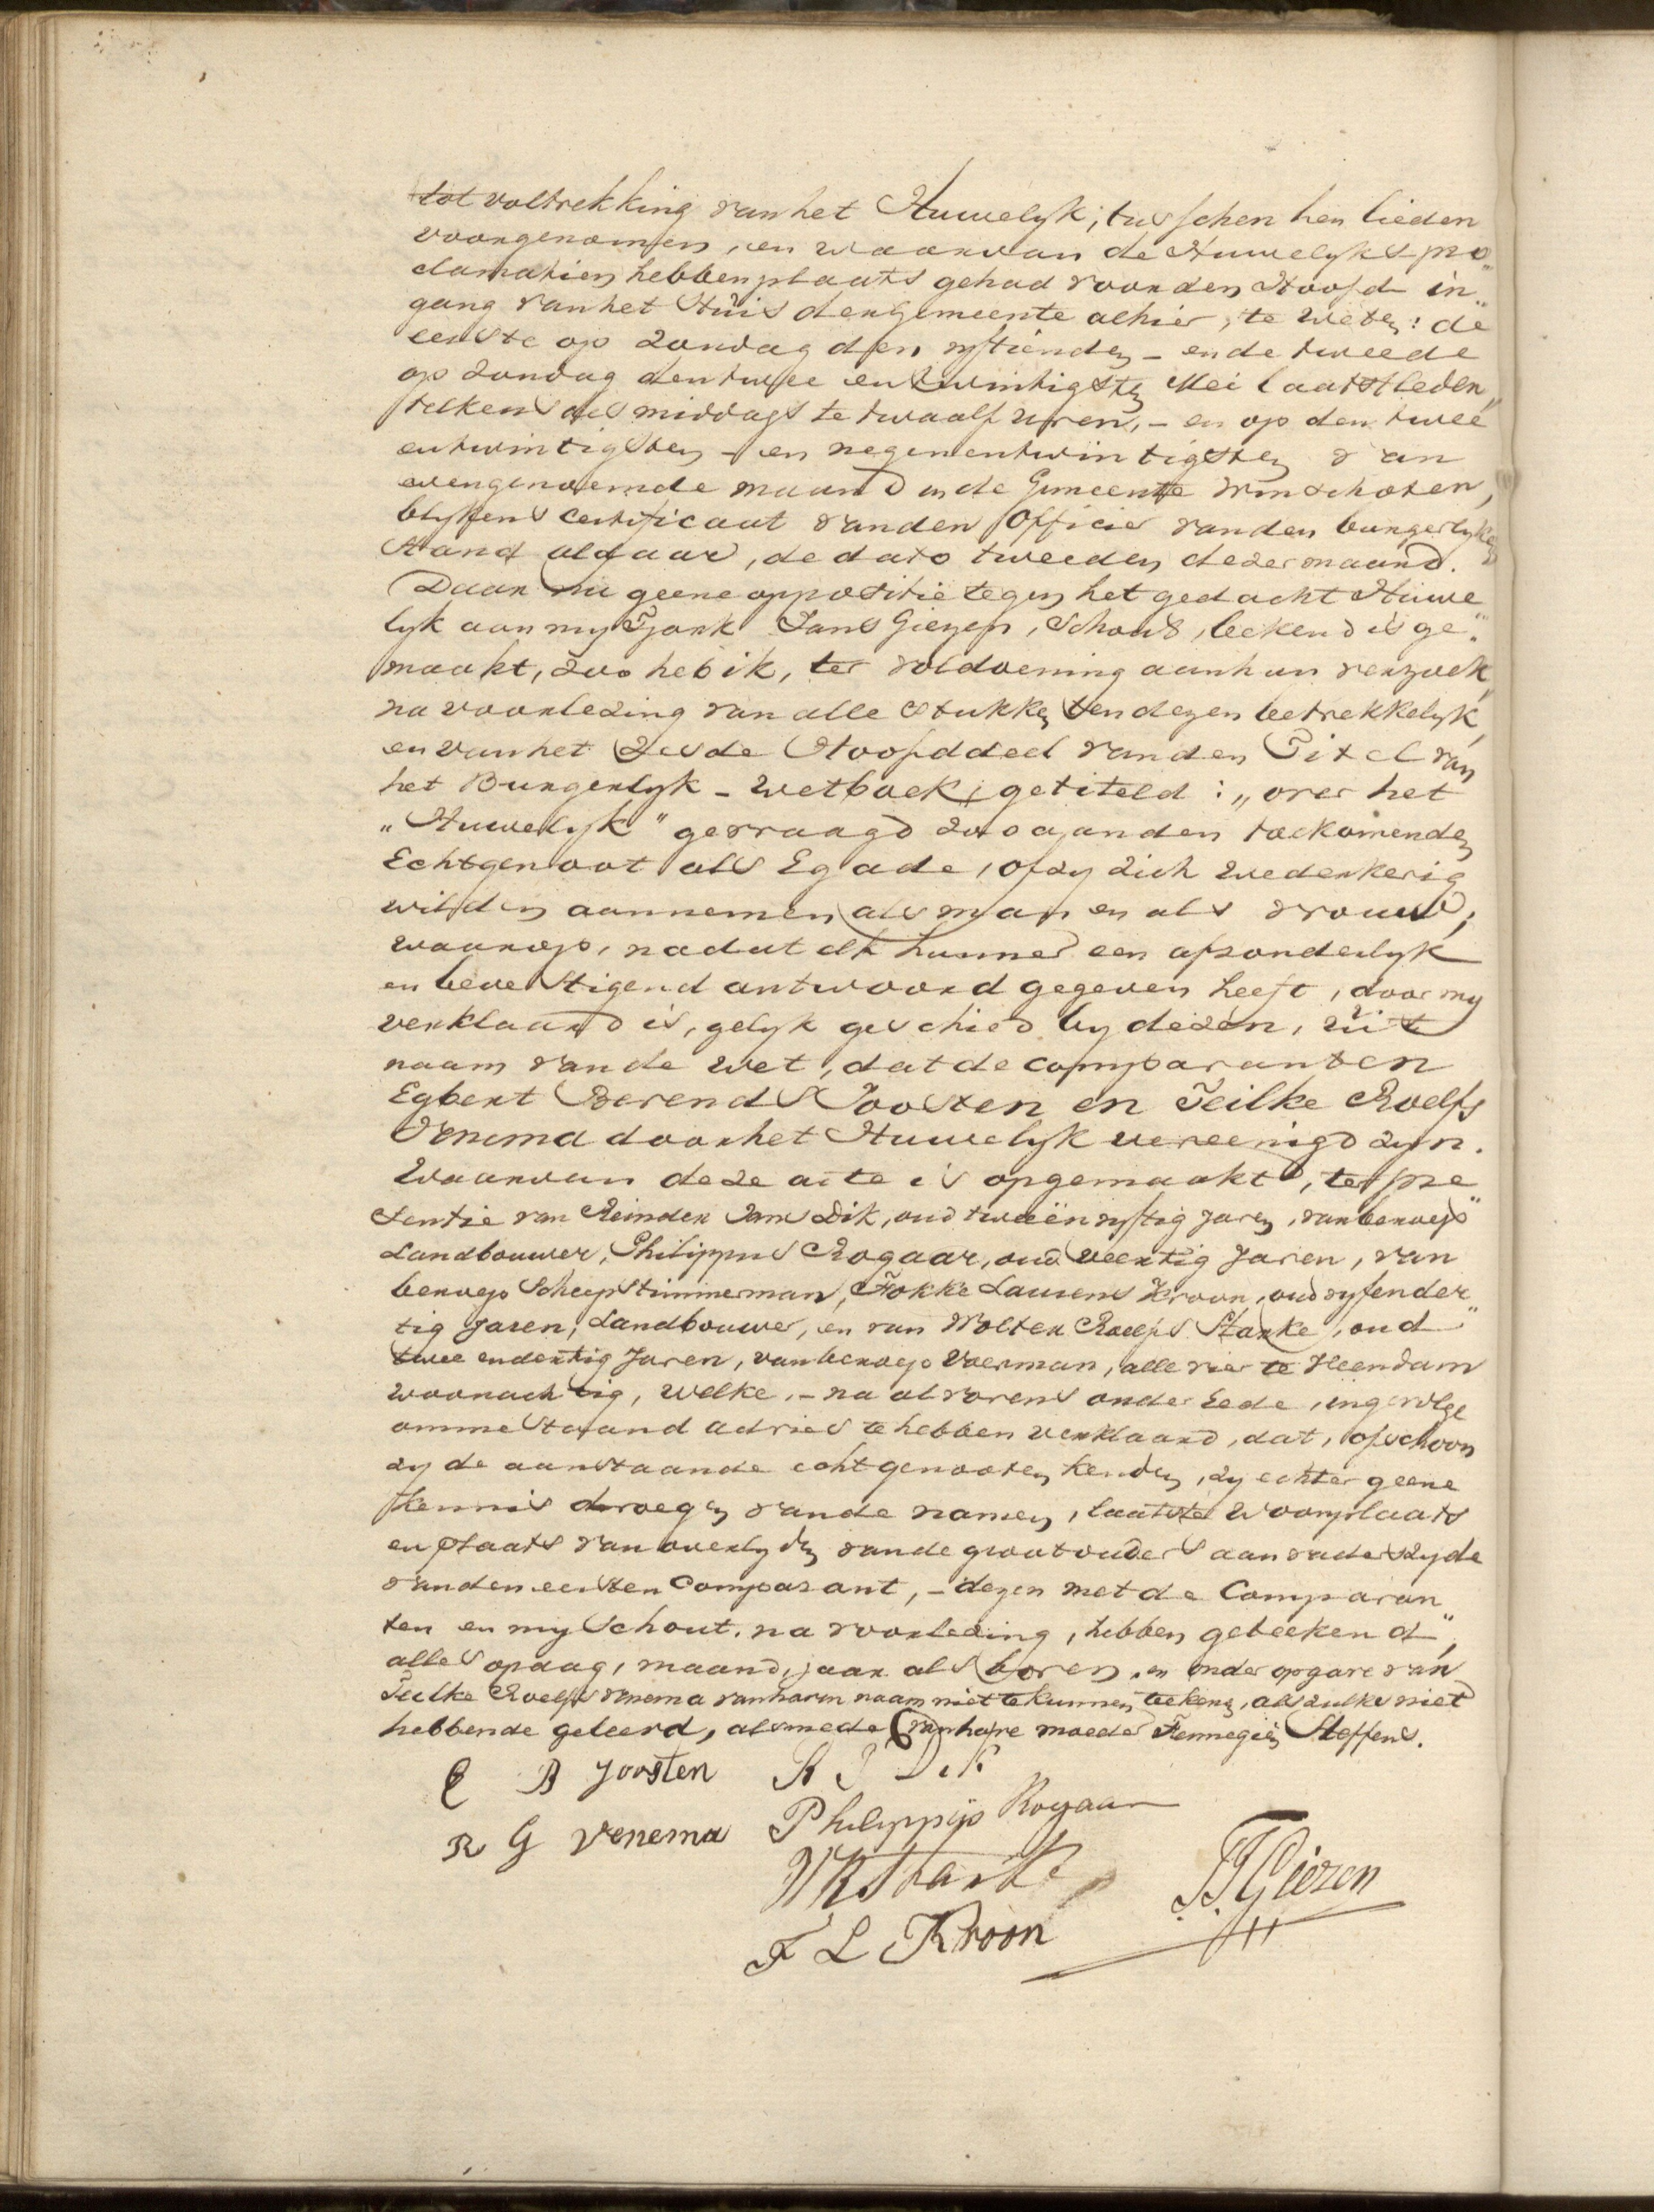 tot voltrekking van het Huwelyk, tusschen hen lieden
voorgenomen, en waarvan de Huwelyks pro„
clamatien hebben plaats gehad voor den Hoofd in„
gang van het Huis der gemeente alhier, te weten: de
eerste op Zondag den vyftienden – en de tweede
op Zondag den twee en twintigsten Mei laatstleden,
telkens des middags te twaalf uren, – en op den twee
entwintigsten – en negenentwintigsten van
evengenoemde maand in de Gemeente Winschoten,
blykens Certificaat van den Officier van den burgerlyken
Stand aldaar, de dato tweeden dezer maand.
Daar nu geene oppositie tegen het gedacht Huwe
lyk aan my Tjark Jans Giezen, Schout, bekend is ge„
maakt, zoo heb ik, ter voldoening aan hun verzoek,
na voorlezing van alle Stukken ten dezen betrekkelyk,
en van het Zesde Hoofddeel van den Titel van
het Burgerlyk – Wetboek, getiteld: „over het
„Huwelyk" gevraagd zoo aan den toekomenden
Echtgenoot als Egade, of zy zich wederkerig
wilden aannemen als man en als vrouw;
waarop, nadat elk hunner een afzonderlyk
en bevestigend antwoord gegeven heeft, door my
verklaard is, gelyk geschied by dezen, uit
naam van de Wet, dat de comparanten
Egbert Berends Joosten en Teilke Roelfs
Venema door het Huwelyk vereenigd zyn.
Waarvan deze acte is opgemaakt, ter pre„
sentie van Reinder Jans Dik, oud tweeënvyftig Jaren, van beroep
Landbouwer, Philippus Rogaar, oud veertig Jaren, van
beroep Scheepstimmerman, Fokke Lauwens Kroon, oud vyfender„
tig Jaren, Landbouwer, en van Wolter Roelfs Starke, oud
twee endertig Jaren, van beroep Voerman, alle vier te Veendam
woonachtig, welke, – na alvorens onder Eede, ingevolge
ommestaand advies te hebben verklaard, dat, ofschoon
zy de aanstaande echtgenooten kenden, zy echter geene
kennis droegen van de namen, laatste woonplaats
en plaats van overlyden van de grootouders aan vaderszyde
van den eersten Comparant, – dezen met de Comparan„
ten en my Schout, na voorlezing, hebben geteekend,
alles op dag, maand, jaar als boven, en onder opgave van
Teilke Roelfs Venema van haren naam niet te kunnen teekenen, als zulks niet
hebbende geleerd, alsmede van hare moeder Fennegien Steffens.
E B Joosten R J Dik
R G Venema Philippus Rogaar
W R Starke
T J Giezen
F L Kroon